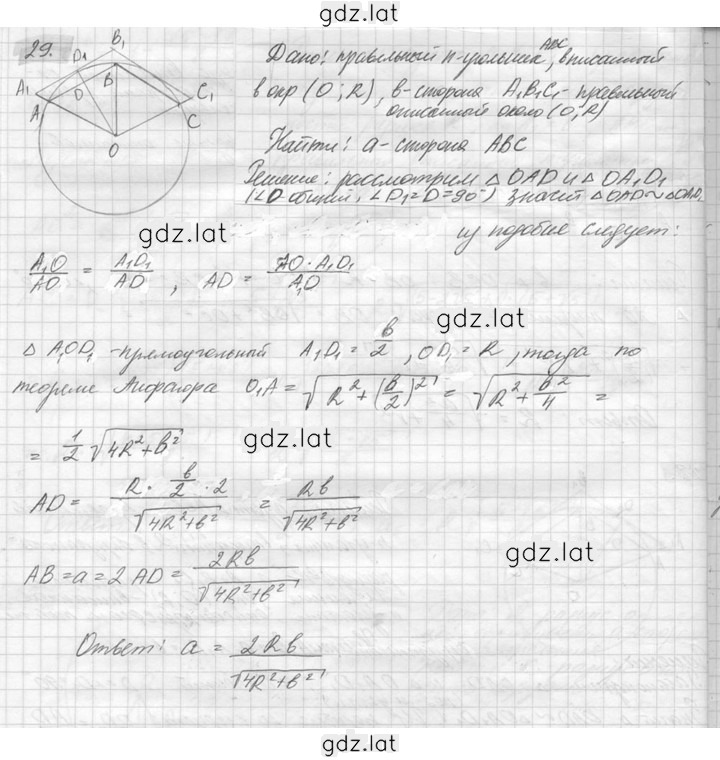 gdz.lat
29.
D₁ B₁
A₁ A D B C₁ C
O
Дано: правельный n-угольник ABC, вписанный
в окр (O; R), в-сторона A₁B₁C₁ - правельный
описанной около (O, R)
Найти: a-сторона ABC
Решение: рассмотрим △OAD и △OA₁D₁
(∠O-общий, ∠D₁=D=90°) значит △OAD~△OA₁D₁
gdz.lat
из подобие следует:
A₁O/AO = A₁D₁/AD, AD = AO·A₁D₁/A₁O
gdz.lat
△ A₁OD₁ -прямоугольный A₁D₁ = в/2, OD₁ = R, тогда по
теореме Пифагора O₁A = √(R²+(в/2)²) = √(R²+в²/4) =
= 1/2 √(4R²+в²)
gdz.lat
AD = (R · в/2 · 2)/√(4R²+в²) = Rв/√(4R²+в²)
gdz.lat
AB = a = 2AD = 2Rв/√(4R²+в²)
Ответ: a = 2Rв/√(4R²+в²)
gdz.lat